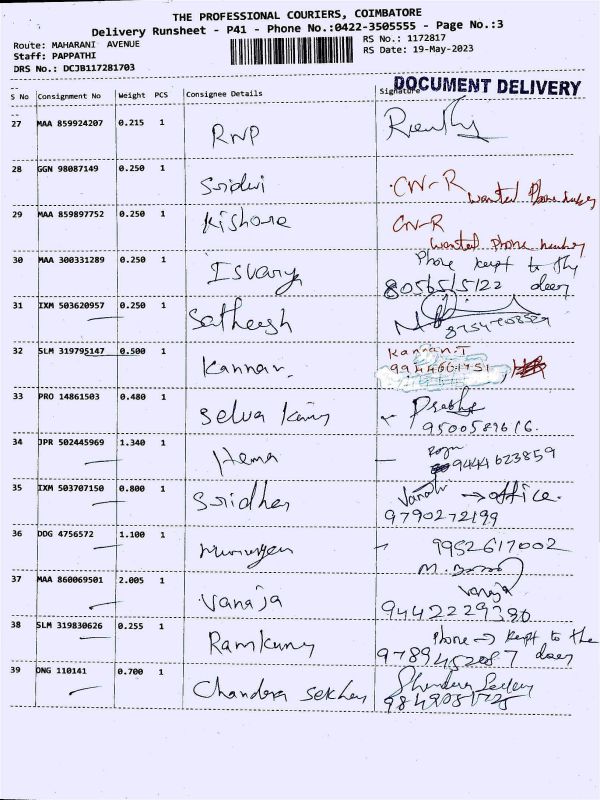 THE PROFESSIONAL COURIERS, COIMBATORE
Delivery Runsheet - P41 - Phone No.:0422-3505555 - Page No.:3
Route: MAHARANI AVENUE
RS No.: 1172817
Staff: PAPPATHI
RS Date: 19-May-2023
DRS No.: DCJB117281703
DOCUMENT DELIVERY
S No Consignment No Weight PCS Consignee Details Signature
27 MAA 859924207 0.215 1 RNP
28 GGN 98087149 0.250 1 Sridevi CN-R
wanted Phone number
29 MAA 859897752 0.250 1 Kishore CN-R
wanted phone number
30 MAA 300331289 0.250 1 Isvarya Phone kept to the
8056515122 door
31 IXM 503620957 0.250 1 Satheesh
8754708529
32 SLM 319795147 0.500 1 Kannan Kannan.T
9944661951
33 PRO 14861503 0.480 1 Selva Kumar
9500589616.
34 JPR 502445969 1.340 1 Hema
9444623859
35 IXM 503707150 0.800 1 Sridher → office.
9790272199
36 DDG 4756572 1.100 1 Murugen 9952617002
37 MAA 860069501 2.005 1 Vanaja Vanaja
9442229380
38 SLM 319830626 0.255 1 Ramkumar Phone → kept to the
9789452087 door
39 DNG 110141 0.700 1 Chandra Sekher